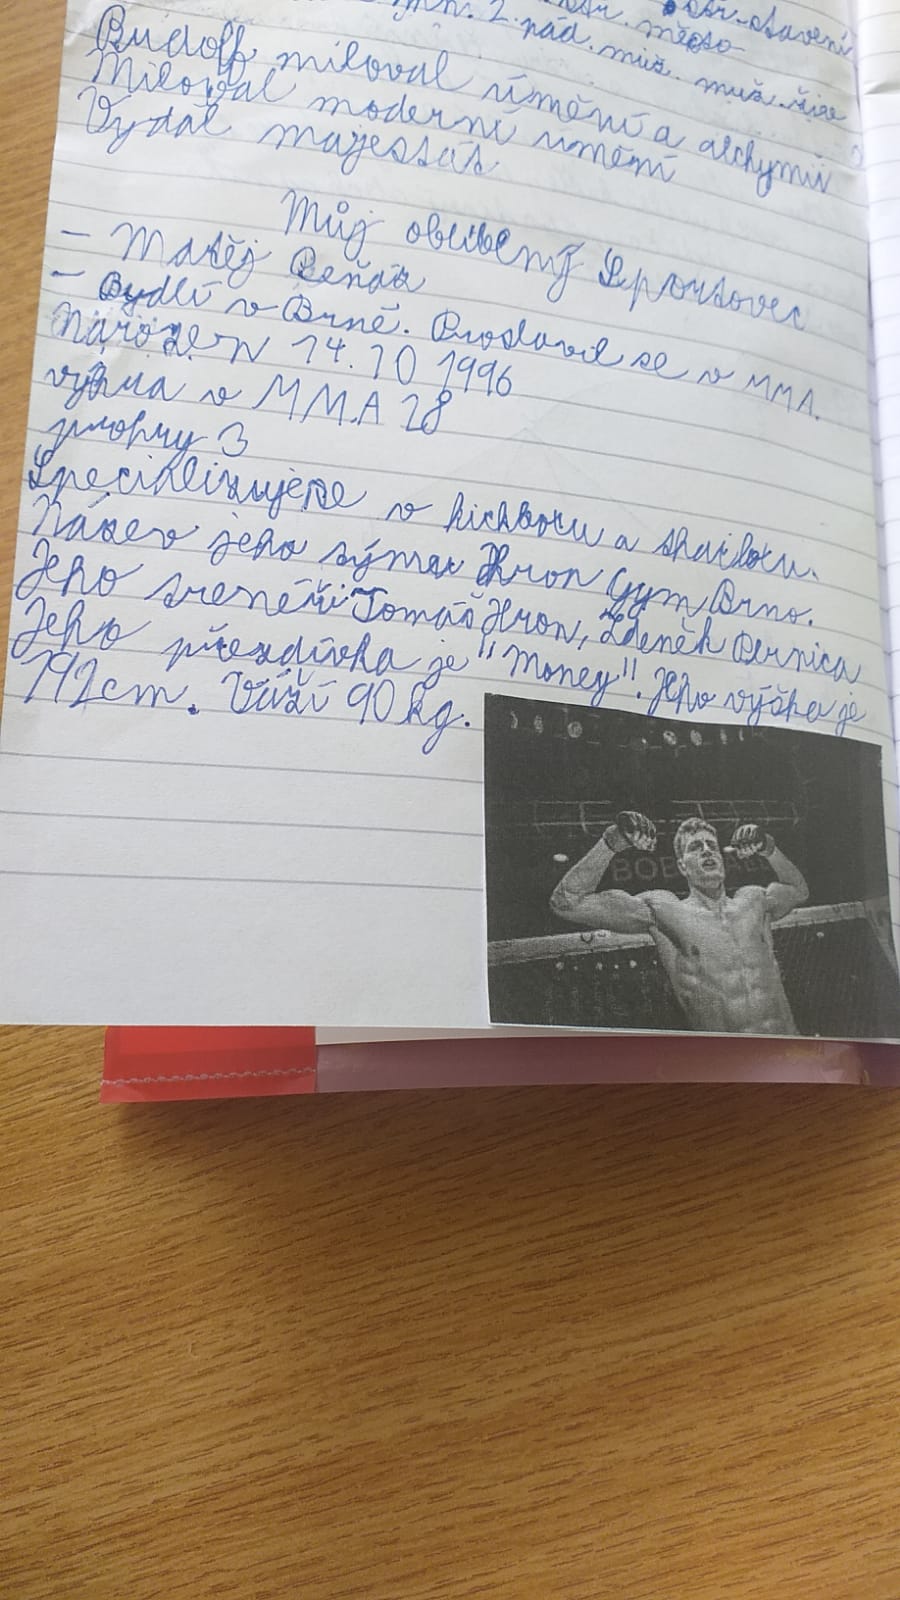 mn. 2. pád. muž. muž. říše
stř. město
stř. stavení
Rudolf miloval úmění a alchymii
Miloval moderní umění
Vydal majestát
Můj oblíbený sportovec
- Matěj Peňáz
- Bydlí v Brně. Proslavil se v MMA.
Narozen 14. 10 1996
výhra v MMA 28
prohry 3
Specializuje se v kickboxu a thaiboxu.
Název jeho týmu Hron Gym Brno.
Jeho trenéři Tomáš Hron, Zdeněk Pernica
Jeho přezdívka je "Money". Jeho výška je
192cm. Váží 90 kg.